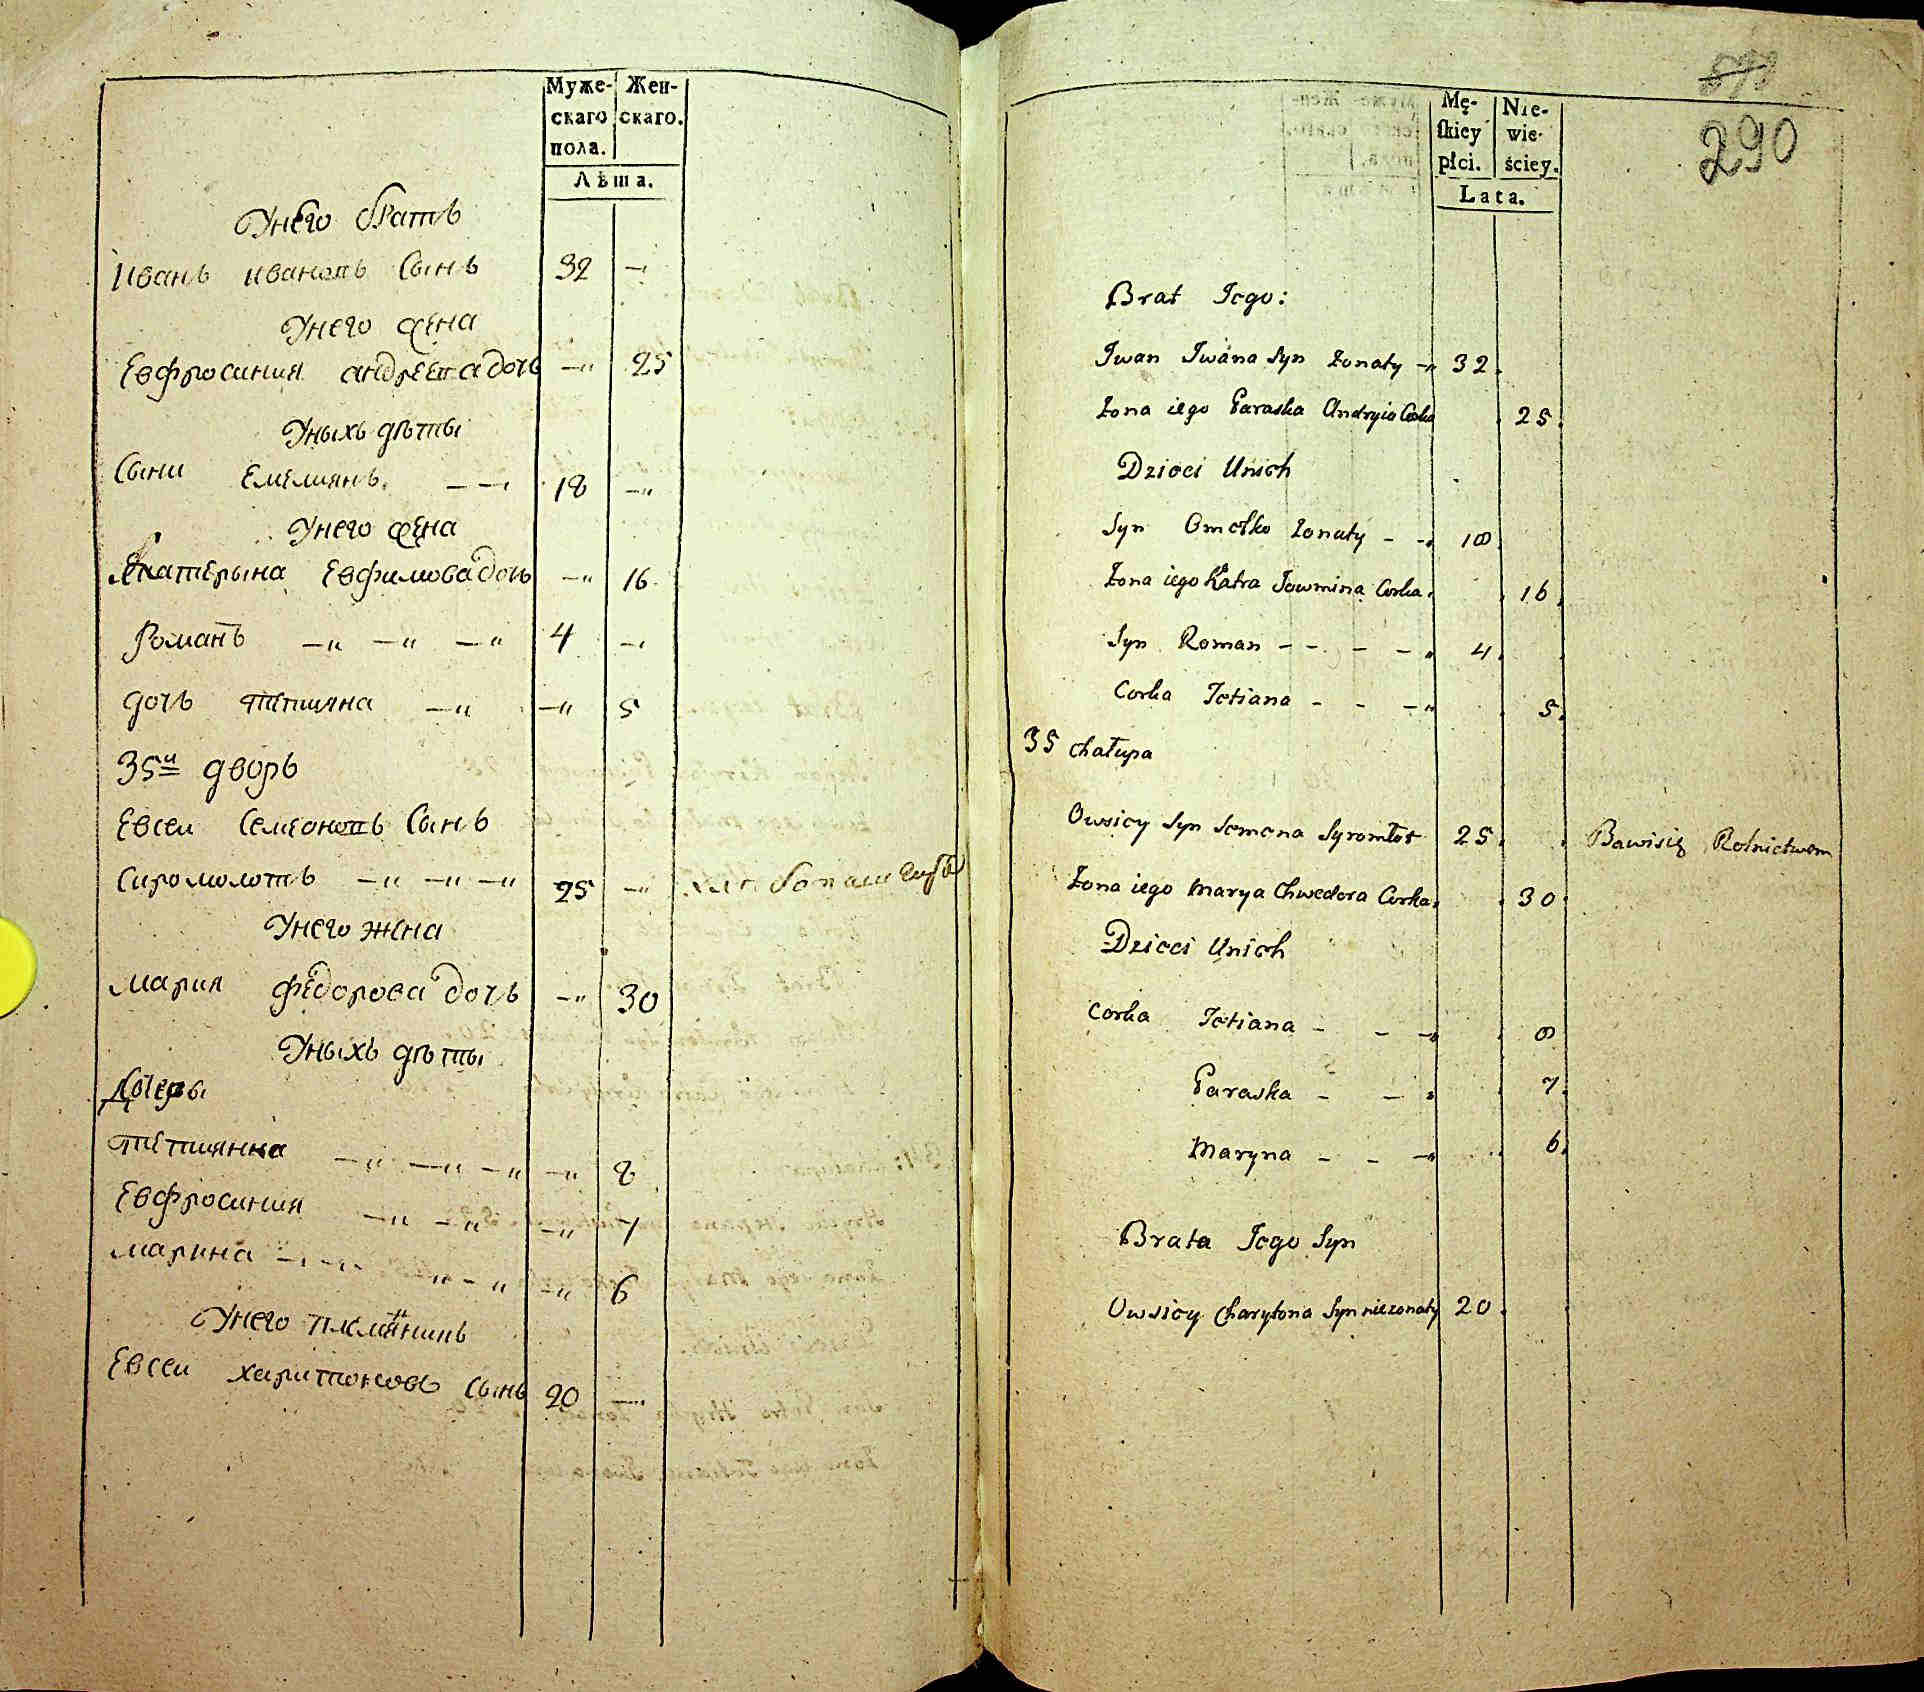 Муже-
скаго
пола.
Жен-
скаго.
Лѣта.
Унего братъ
Иванъ ивановъ Сынъ 32 —
Унего жена
Евфросиния андреева дочь —„ 25
Уныхъ дѣты
Сыни Емелиянъ — — 18 —„
Унего жена
Екатерына Евфимова дочь —„ 16
Романъ —„ —„ —„ 4 —
дочь тетияна —„ —„ 5
35й дворъ
Евсеи Семеоновъ Сынъ
Сиромолотъ —„ —„ —„ 25 —„
Унего жена
Мария федорова дочъ —„ 30
Уныхъ дѣты
Дочеры
тетиянна —„ —„ —„ —„ 8
Евфросиния —„ —„ —„ 7
марина —„ 6
Унего племянинъ
Евсеи харитоновъ Сынъ 20 —
Mę-
skiey
płci.
Nie-
wie-
ściey.
Lata.
290
Brat Jego:
Jwan Jwana Syn żonaty —„ 32.
żona iego Paraska Andryia Corka 25.
Dzieci Unich
Syn Omelko żonaty — —„ 18.
Żona iego Katra Jowmina Corka. 16.
Syn Roman — — — — „ 4.
Corka Tetiana — — —„ 5.
35 chałupa
Owsiey Syn Semena Syromłot 25. Bawisię Rolnictwem
Żona iego Marya Chwedora Corka. 30.
Dzieci Unich
Corka Tetiana — — —„ 8
Paraska — — „ 7.
Maryna — — —„ 6.
Brata Jego Syn
Owsiey Charytona Syn nieżonaty 20.